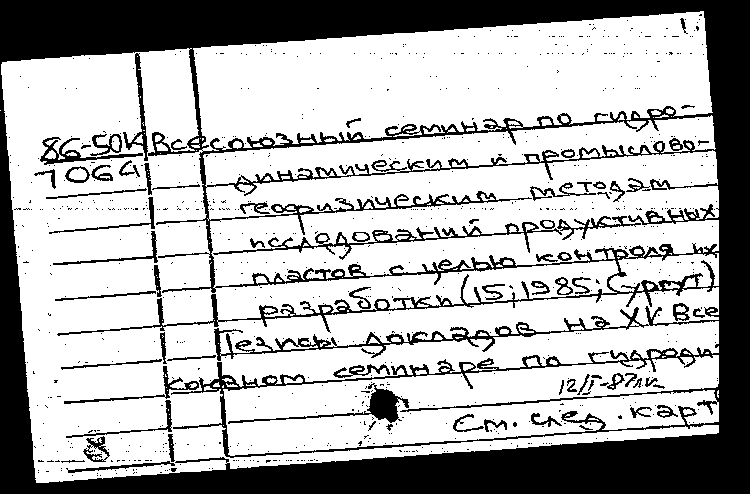 1.
86-50К Всесоюзный семинар по гидро-
7064 динамическим и промыслово-
геофизическим методам
исследований продуктивных
пластов с целью контроля их
разработки (15; 1985; Сургут)
Тезисы докладов на XV Все
союзном семинаре по гидроди-
12/I-87
См. след. карт